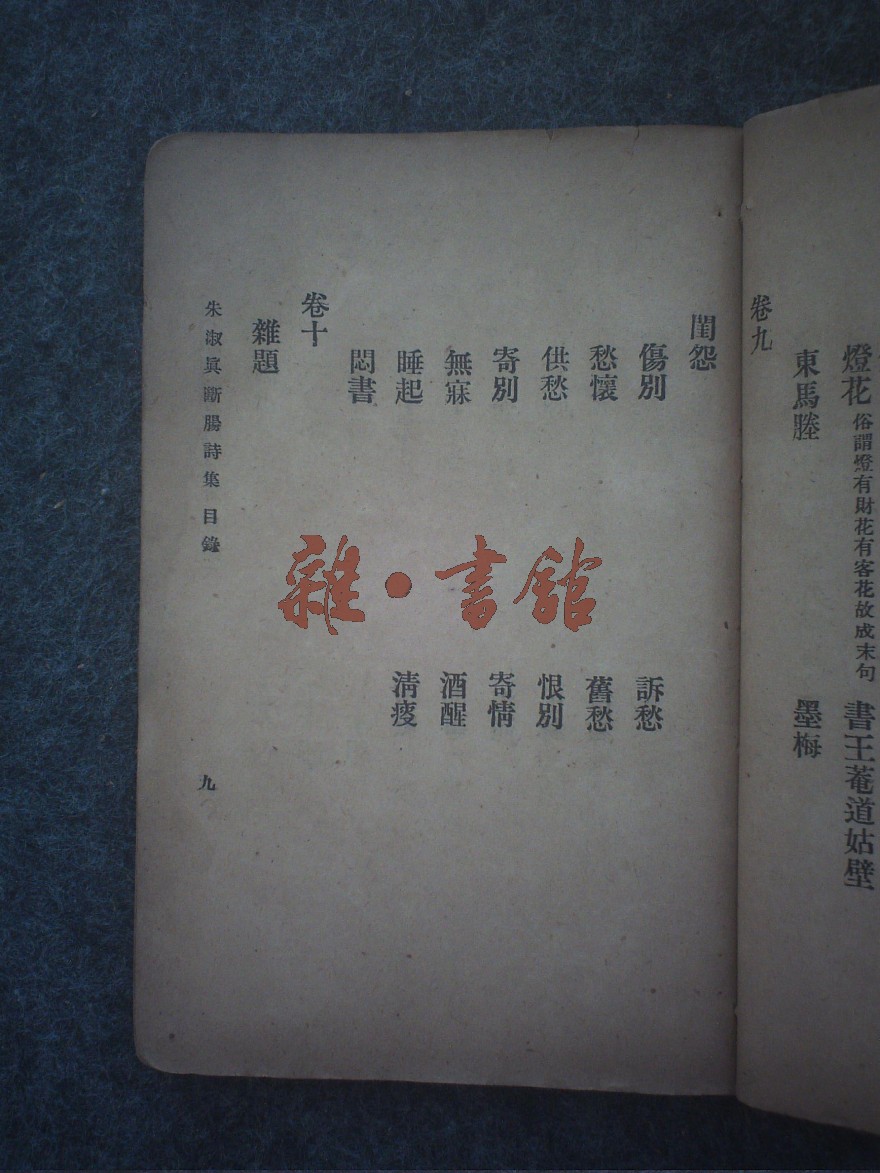 燈花 俗謂燈有財花有客花故成末句 書王菴道姑壁
東馬塍 墨梅
卷九
閨怨
傷別 訴愁
愁懷 舊愁
供愁 恨別
寄別 寄情
無寐 酒醒
睡起 清瘦
悶書
卷十
雜題
朱淑眞斷腸詩集 目錄 九
雜·書館